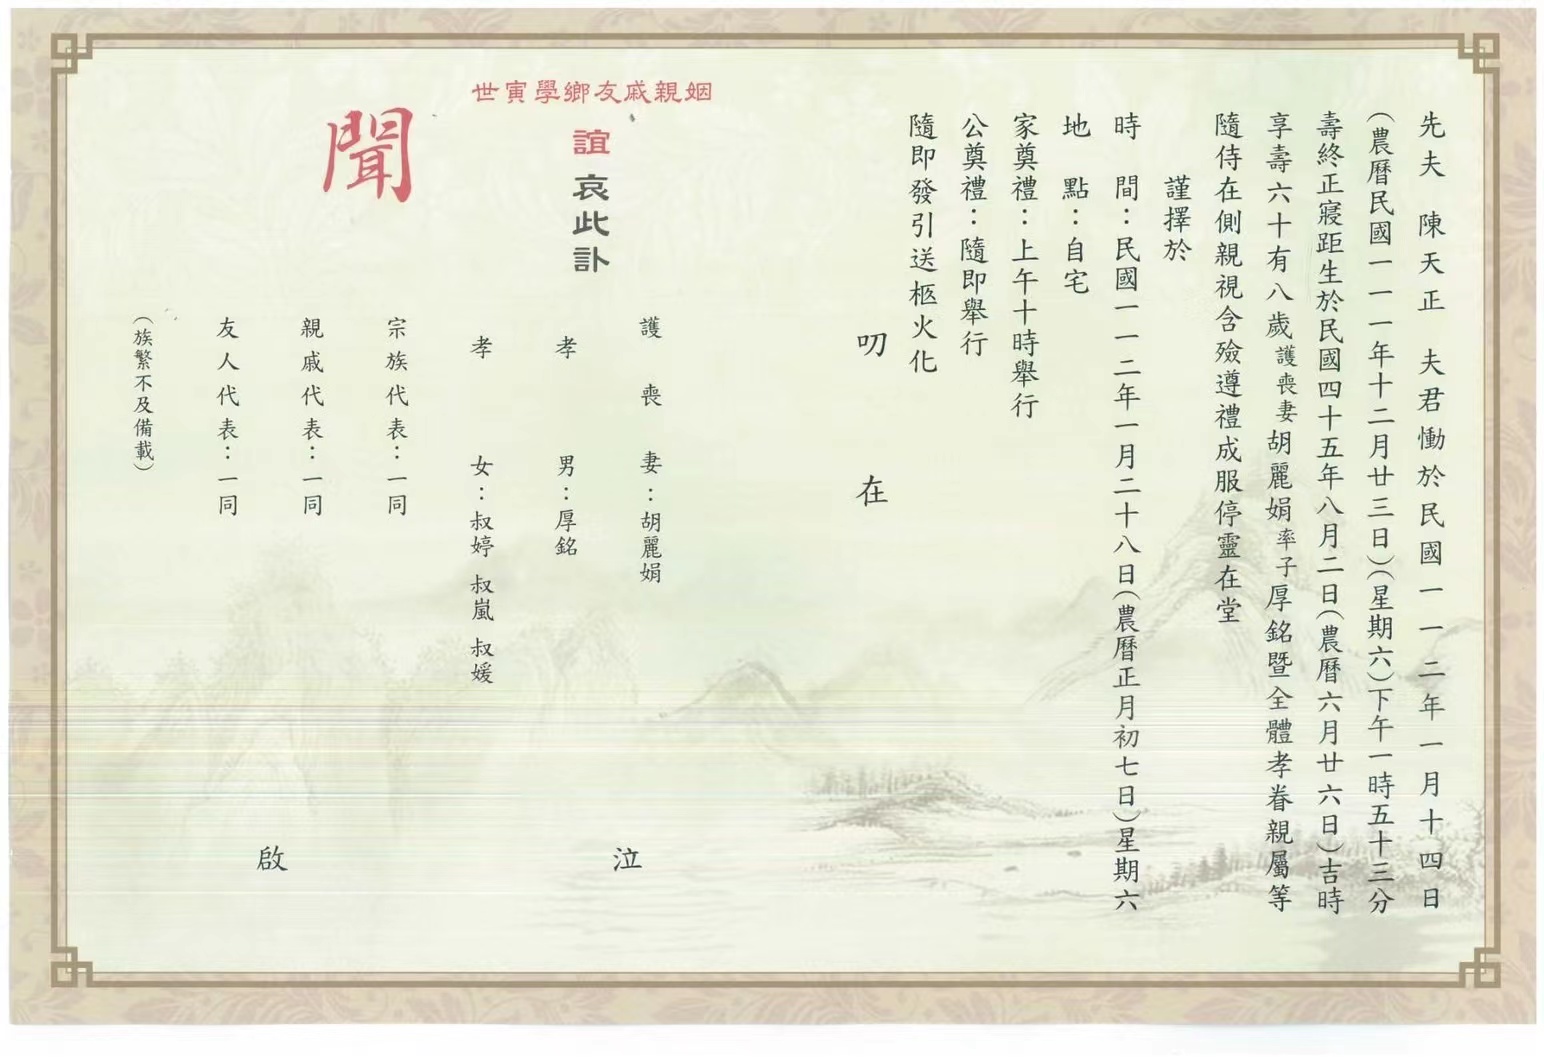 先夫　陳天正　夫君慟於民國一一二年一月十四日
(農曆民國一一一年十二月廿三日)(星期六)下午一時五十三分
壽終正寢距生於民國四十五年八月二日(農曆六月廿六日)吉時
享壽六十有八歲護喪妻胡麗娟率子厚銘暨全體孝眷親屬等
隨侍在側親視含殮遵禮成服停靈在堂
謹擇於
時　間：民國一一二年一月二十八日(農曆正月初七日)星期六
地　點：自宅
家奠禮：上午十時舉行
公奠禮：隨即舉行
隨即發引送柩火化
叨　在
姻親戚友鄉學寅世
誼哀此訃
聞
護喪妻：胡麗娟
孝　男：厚銘
孝　女：叔婷　叔嵐　叔媛
泣
宗族代表：一同
親戚代表：一同
友人代表：一同
啟
(族繁不及備載)